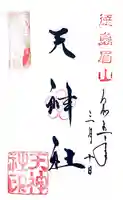 徳島眉山
三月
天神社
天神
社印